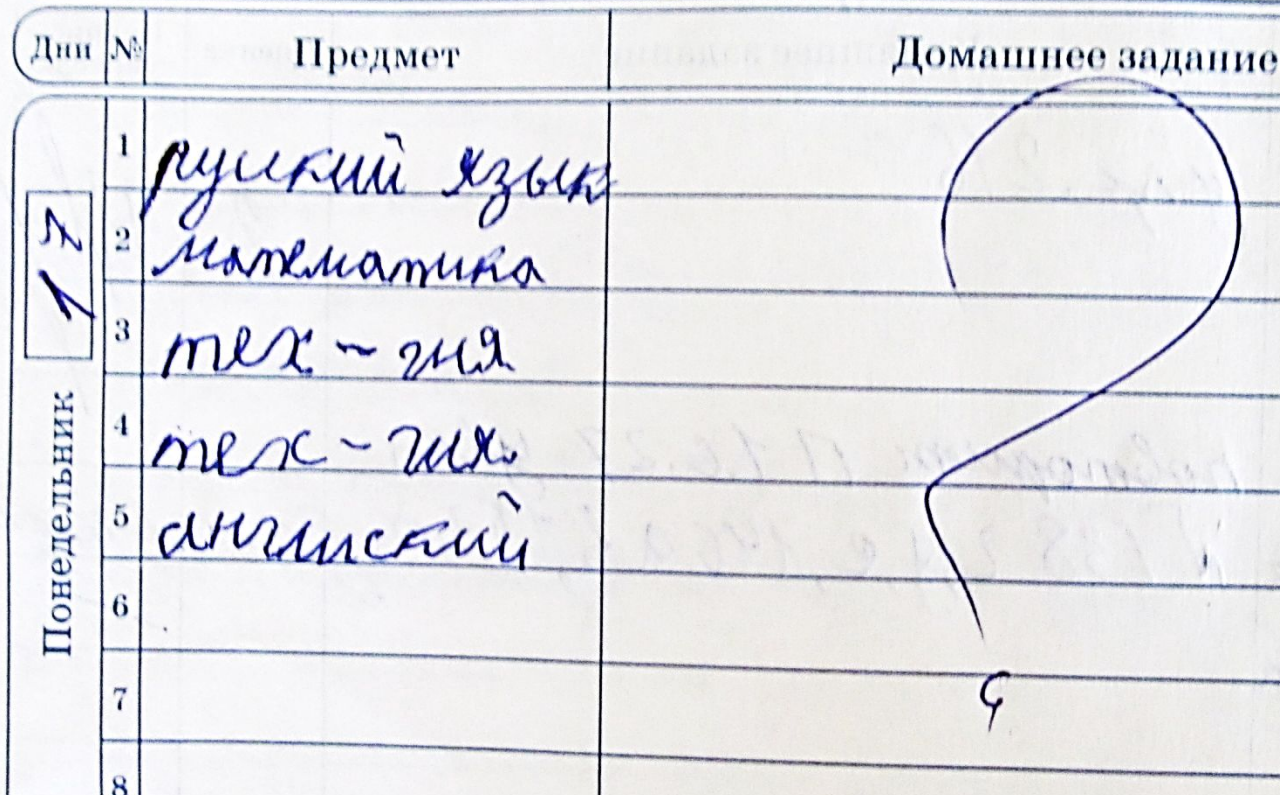 Дни № Предмет Домашнее задание
Понедельник 17
1 руский язык
2 математика
3 тех-гия
4 тех-гия.
5 английский
6
7
8